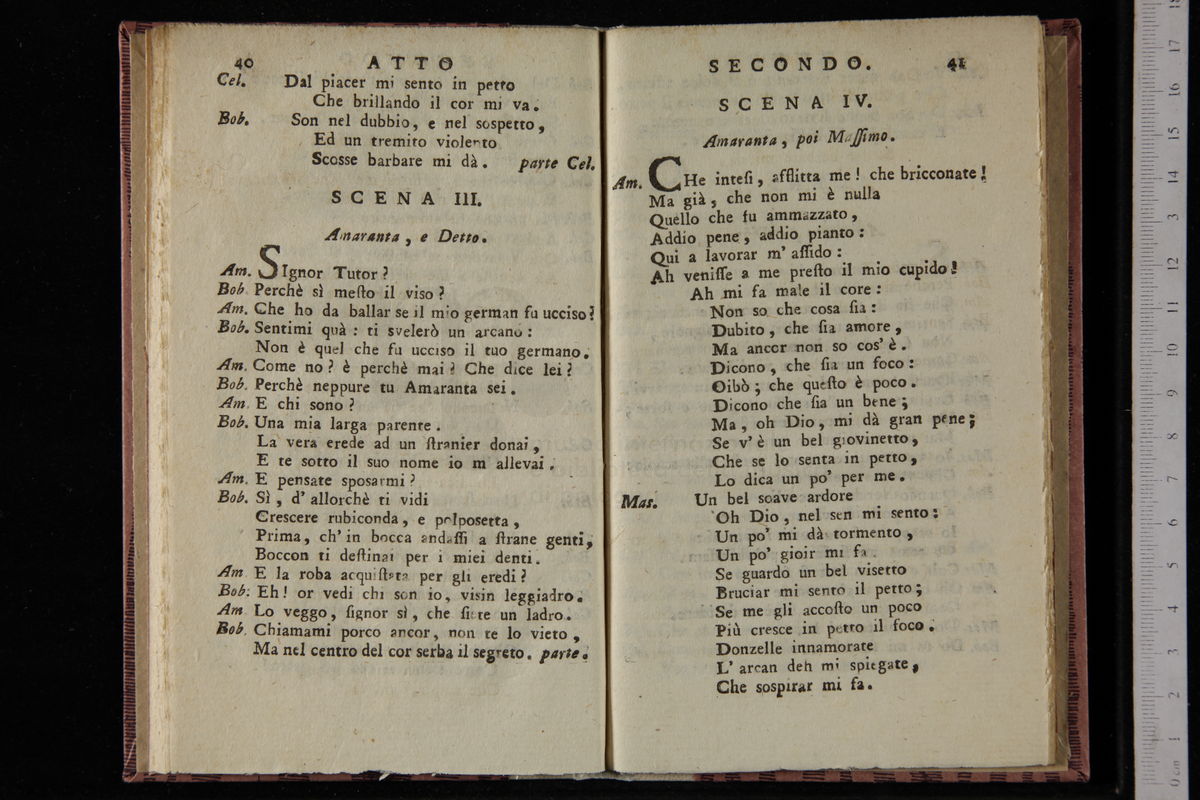 40 ATTO
Cel. Dal piacer mi sento in petto
Che brillando il cor mi va.
Bob. Son nel dubbio, e nel sospetto,
Ed un tremito violento
Scosse barbare mi dà. parte Cel.
SCENA III.
Amaranta, e Detto.
Am. SIgnor Tutor?
Bob. Perchè sì meſto il viso?
Am. Che ho da ballar se il mio german fu ucciso?
Bob. Sentimi quà: ti svelerò un arcano:
Non è quel che fu ucciso il tuo germano.
Am. Come no? è perchè mai? Che dice lei?
Bob. Perchè neppure tu Amaranta sei.
Am. E chi sono?
Bob. Una mia larga parente.
La vera erede ad un ſtranier donai,
E te sotto il suo nome io m' allevai.
Am. E pensate sposarmi?
Bob. Sì, d' allorchè ti vidi
Crescere rubiconda, e polposetta,
Prima, ch' in bocca andaſſi a ſtrane genti,
Boccon ti deſtinai per i miei denti.
Am. E la roba acquiſtata per gli eredi?
Bob. Eh! or vedi chi son io, visin leggiadro.
Am. Lo veggo, ſignor sì, che ſiete un ladro.
Bob. Chiamami porco ancor, non te lo vieto,
Ma nel centro del cor serba il segreto. parte.
SECONDO. 41
SCENA IV.
Amaranta, poi Maſſimo.
Am. CHe inteſi, afflitta me! che bricconate!
Ma già, che non mi è nulla
Quello che fu ammazzato,
Addio pene, addio pianto:
Qui a lavorar m' aſſido:
Ah veniſſe a me preſto il mio cupido!
Ah mi fa male il core:
Non so che cosa ſia:
Dubito, che ſia amore,
Ma ancor non so cos' è.
Dicono, che ſia un foco:
Oibò; che queſto è poco.
Dicono che ſia un bene;
Ma, oh Dio, mi dà gran pene;
Se v' è un bel giovinetto,
Che se lo senta in petto,
Lo dica un po' per me.
Mas. Un bel soave ardore
Oh Dio, nel sen mi sento:
Un po' mi dà tormento,
Un po' gioir mi fa.
Se guardo un bel visetto
Bruciar mi sento il petto;
Se me gli accoſto un poco
Più cresce in petto il foco.
Donzelle innamorate
L' arcan deh mi spiegate,
Che sospirar mi fa.